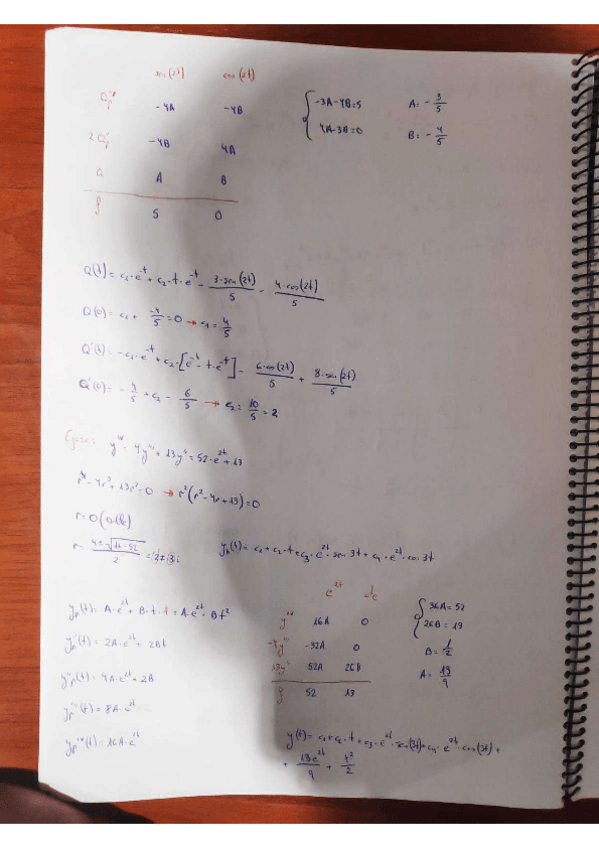 sen(2t) cos(2t)
Q'' -4A -4B
2Q' -4B 4A
Q A B
f 5 0
{ -3A-4B=5 A= -3/5
4A-3B=0 B= -4/5
Q(t)= c1·e^-t + c2·t·e^-t - 3·sen(2t)/5 - 4·cos(2t)/5
Q(0)= c1 + -4/5 =0 → c1= 4/5
Q'(t)= -c1·e^-t + c2·[e^-t - t·e^-t] - 6·cos(2t)/5 + 8·sen(2t)/5
Q'(0)= -4/5 + c2 - 6/5 → c2= 10/5 =2
y^IV - 4y''' + 13y'' = 52·e^2t + 13
r^4 - 4r^3 + 13r^2 = 0 → r^2(r^2 - 4r + 13)=0
r=0 (doble)
r= 4±√16-52/2 = 2±3i
yh(t)= c1 + c2·t + c3·e^2t·sen 3t + c4·e^2t·cos 3t
yp(t)= A·e^2t + B·t·t = A·e^2t + Bt^2
yp'(t)= 2A·e^2t + 2Bt
yp''(t)= 4A·e^2t + 2B
yp'''(t)= 8A·e^2t
yp^IV(t)= 16A·e^2t
e^2t
y^IV 16A 0
-4y''' -32A 0
13y'' 52A 26B
f 52 13
{ 36A=52
26B=13
B= 1/2
A= 13/9
y(t)= c1 + c2·t + c3·e^2t·sen(3t) + c4·e^2t·cos(3t) +
+ 13e^2t/9 + t^2/2